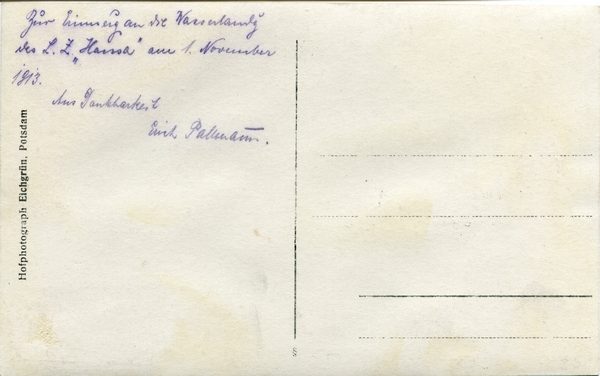 Zur Erinnerg an die Wasserlandg
des L. Z. „Hansa" am 1. November
1913.
Aus Dankbarkeit
Erich
Hofphotograph Eichgrün, Potsdam